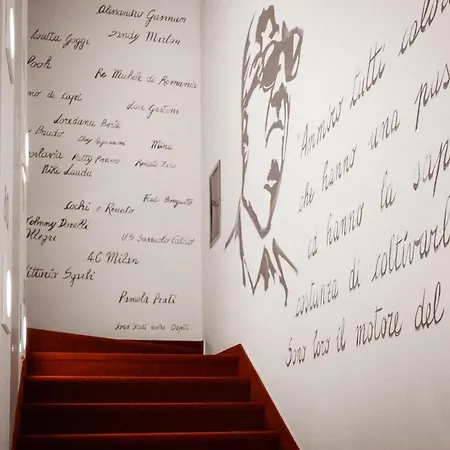 Alessandro Gassman
Loretta Goggi
Sandy Marton
Pooh
Re Michele di Romania
no di Capi
Lea Gastoni
Loredana Bertè
Baudo
Mina
oslavia
Patty Pravo
Renato Zero
Niki Lauda
Fred Bongusto
Cochi e Renato
Johnny Dorelli
Allegri
US Sassuolo Calcio
AC Milan
Vittorio Sgarbi
Pamela Prati
Sono stati nostri Ospiti
Ammiro tutti coloro
che hanno una pas
ed hanno la sap
costanza di coltivarl
Sono loro il motore del